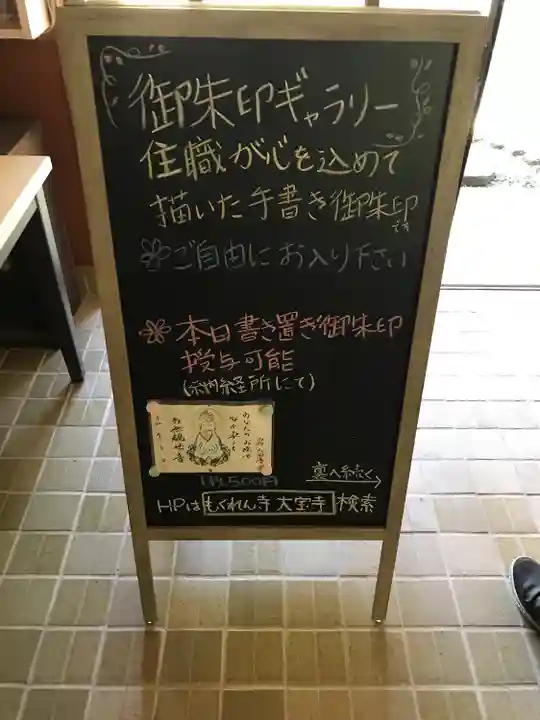 御朱印ギャラリー
住職が心を込めて
描いた手書き御朱印です
ご自由にお入り下さい
本日書き置き御朱印
授与可能
(納経所にて)
南無観世音
1枚500円
裏へ続く
HPは もくれん寺 大宝寺 検索